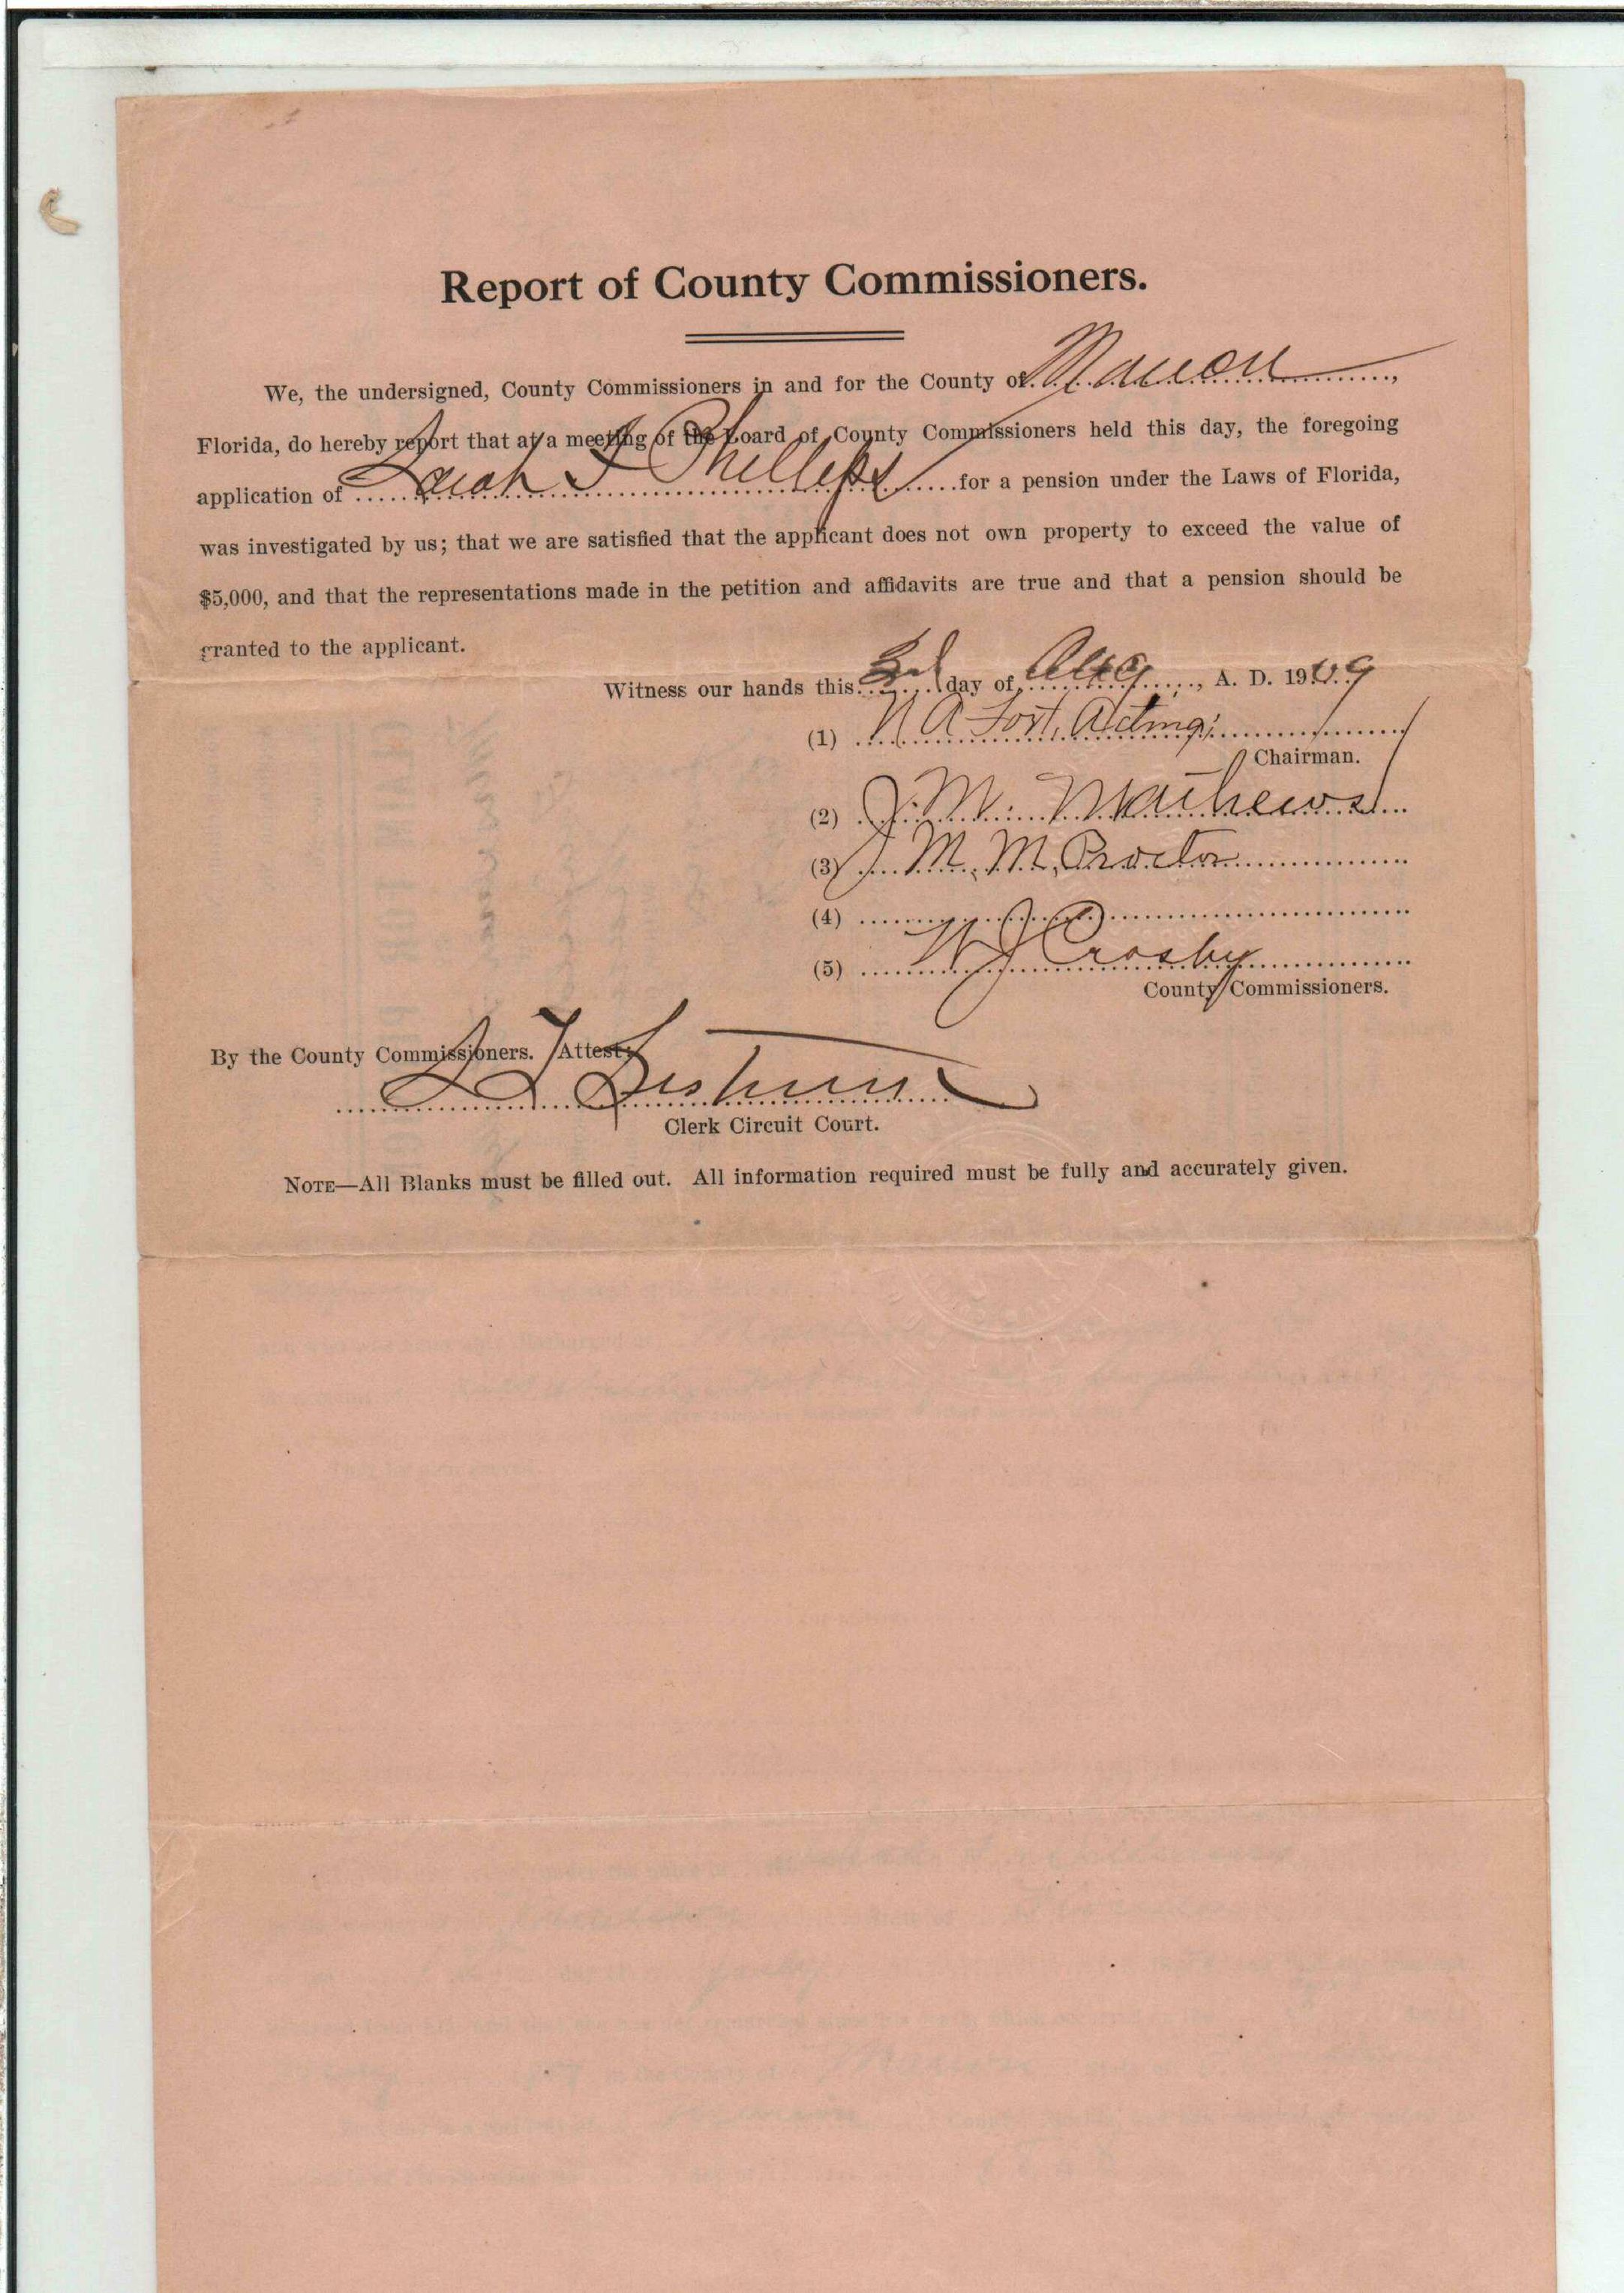 Report of County Commissioners.
We, the undersigned, County Commissioners in and for the County of Marion,
Florida, do hereby report that at a meeting of the Board of County Commissioners held this day, the foregoing
application of Phillips for a pension under the Laws of Florida,
was investigated by us; that we are satisfied that the applicant does not own property to exceed the value of
$5,000, and that the representations made in the petition and affidavits are true and that a pension should be
granted to the applicant.
Witness our hands this 3d day of Aug, A. D. 1909
(1) N A Fort, Acting
Chairman.
(2) J. M. Mathews
(3) M. M. Proctor
(4)
(5) W J Crosby
County Commissioners.
By the County Commissioners. Attest:
Clerk Circuit Court.
NOTE—All Blanks must be filled out. All information required must be fully and accurately given.